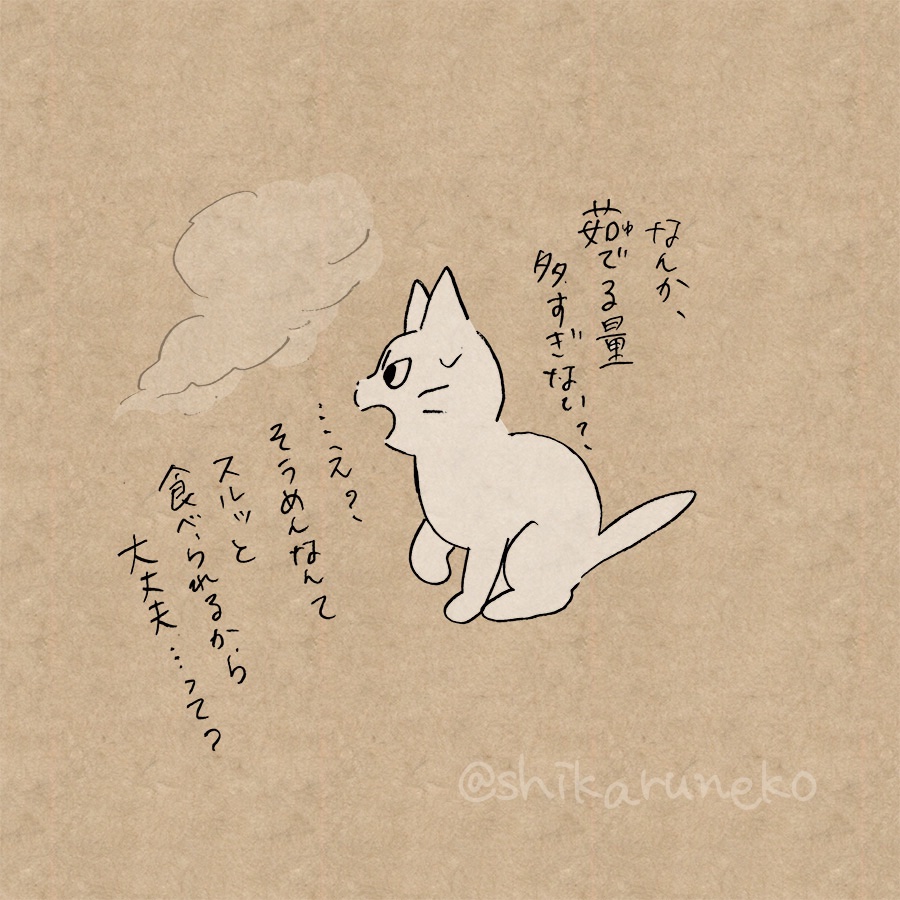 なんか、
茹でる量
多すぎない?、
……え?、
そうめんなんて
スルッと
食べられるから
大丈夫…って?
@shikaruneko